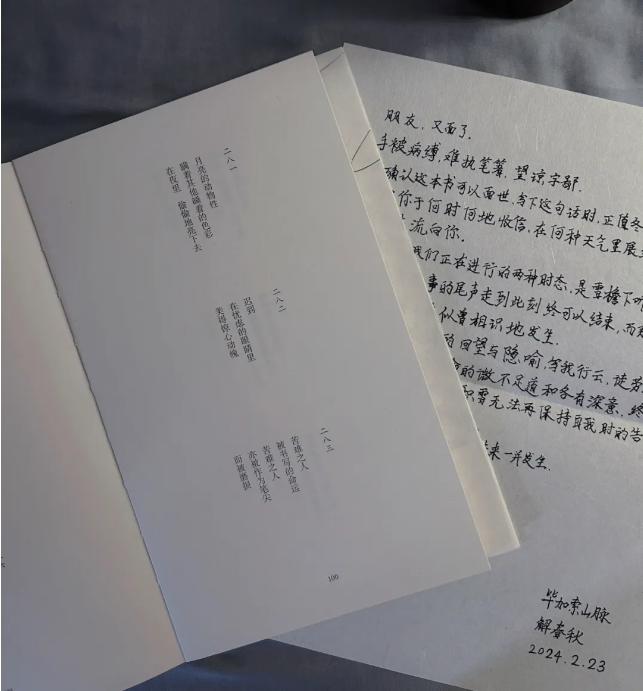 二八一
月亮的动物性
瞒着其他睡着的色彩
在夜里 偷偷地亮下去
二八二
迟到
在忧虑的眼睛里
美得惊心动魄
二八三
苦难之人
被书写的命运
苦难之人
亦被作为笔尖
而被磨损
100
朋友，又面了。
手被病缚，难执笔箸，望谅字鄙。
确认这本书可以面世，写下这句话时，正值冬
你于何时何地收信，在何种天气里展
流向你。
我们正在进行的两种时态，是雪檐下听
事的尾声走到此刻终可以结束，而
似曾相识地发生。
的回望与隐喻，等我行云，徒劳
的微不足道和各有深意，终
积雪无法再保持自我时的告
来一并发生。
毕加索山脉
解春秋
2024.2.23